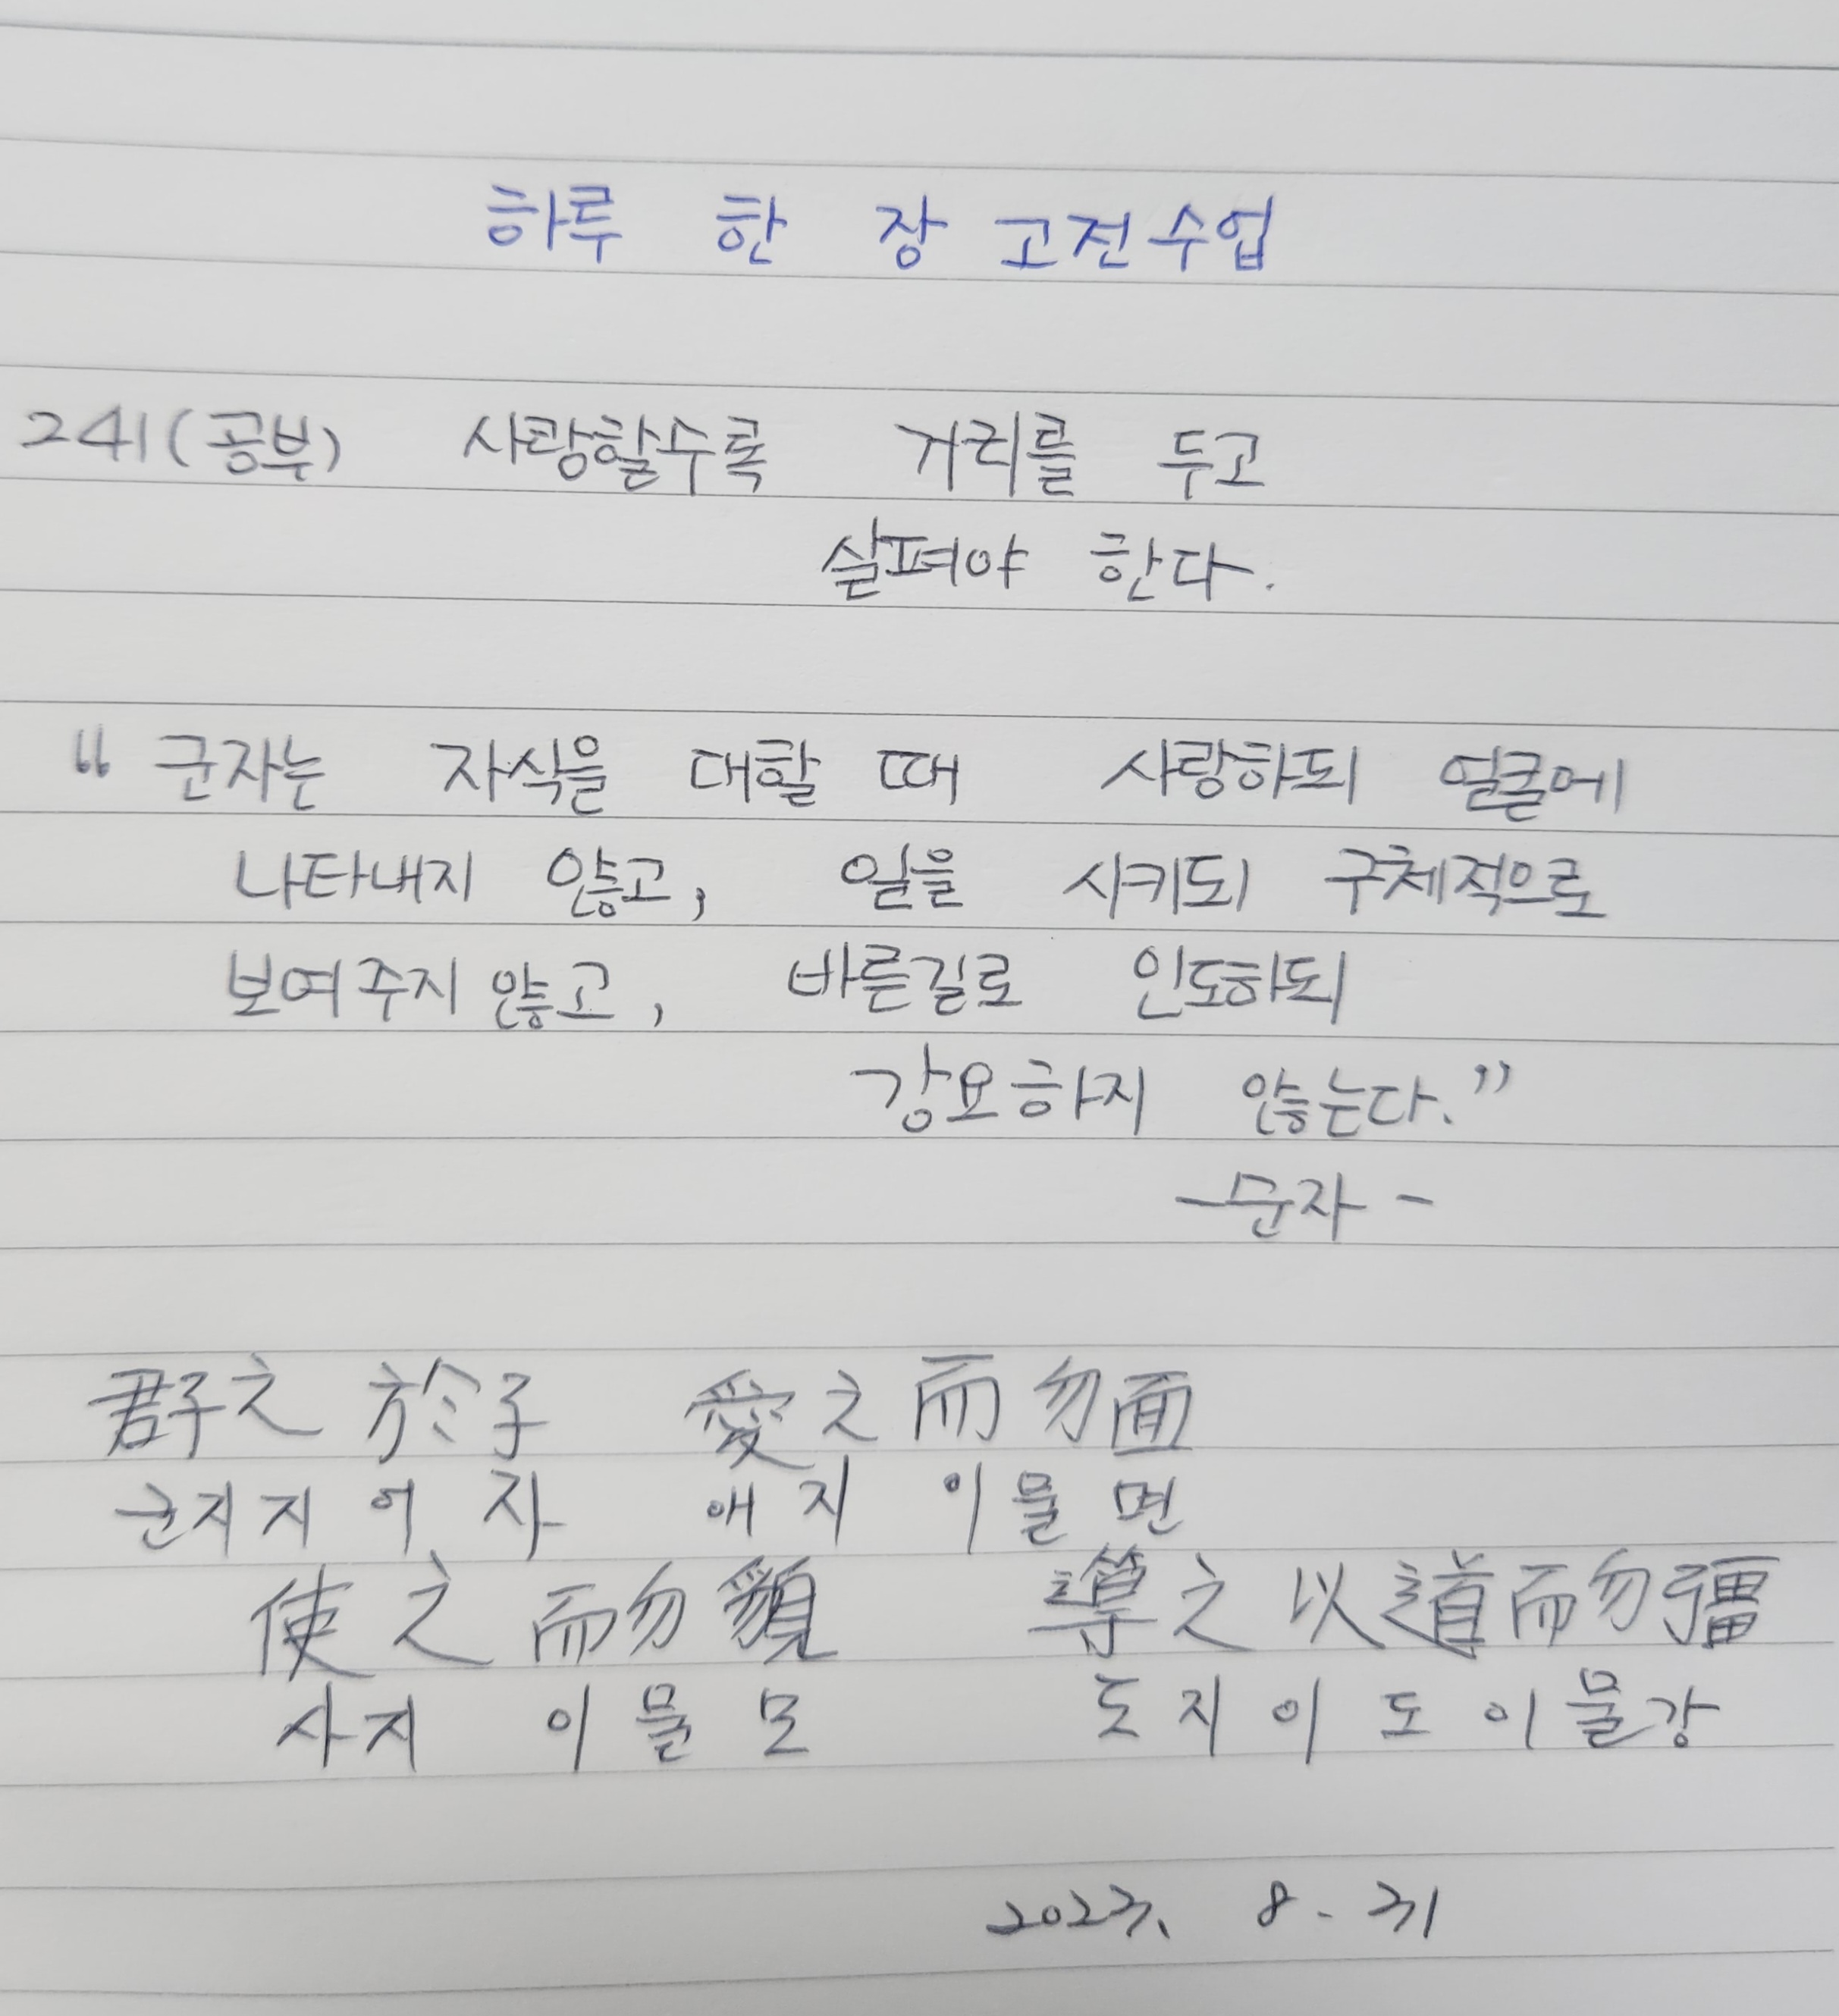 하루 한 장 고전수업
241(공부) 사랑할수록 거리를 두고
살펴야 한다.
“군자는 자식을 대할 때 사랑하되 얼굴에
나타내지 않고, 일을 시키되 구체적으로
보여주지 않고, 바른길로 인도하되
강요하지 않는다.”
-순자-
君子之於子 愛之而勿面
군자지어자 애지이물면
使之而勿貌 導之以道而勿彊
사지이물모 도지이도이물강
2023. 8. 31